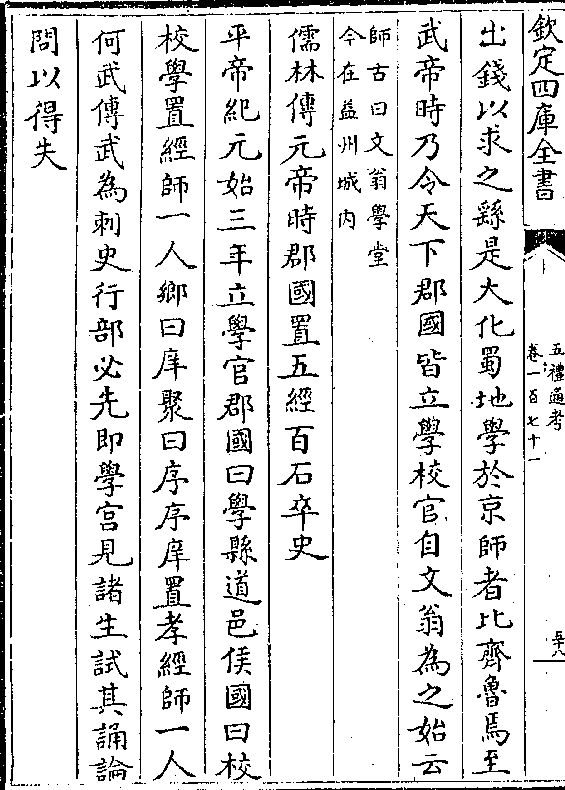 欽定四庫全書
五禮通考
卷一百七十一
出錢以求之繇是大化蜀地學於京師者比齊魯焉至
武帝時乃令天下郡國皆立學校官自文翁為之始云
師古曰文翁學堂
今在益州城内
儒林傳元帝時郡國置五經百石卒史
平帝紀元始三年立學官郡國曰學縣道邑侯國曰校
校學置經師一人鄉曰庠聚曰序序庠置孝經師一人
何武傳武為刺史行部必先即學宫見諸生試其誦論
問以得失